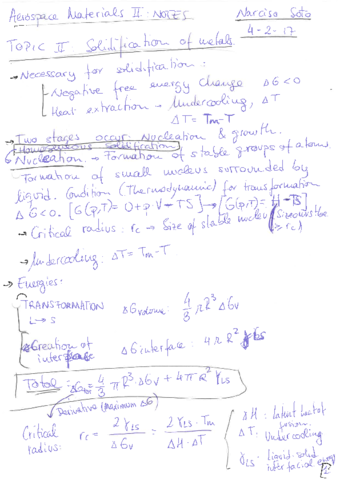 Aerospace Materials II · NOTES Narciso Soto
4-2-17
TOPIC II Solidification of metals
→ Necessary for solidification:
Negative free energy change ΔG<0
Heat extraction → Undercooling, ΔT
ΔT = Tm-T
→ Two stages occur. Nucleation & growth.
Homogeneous Solidification
Nucleation. → Formation of stable groups of atoms
Formation of small nucleus surrounded by
liquid. Condition (Thermodynamic) for transformation
ΔG<0. [G(P,T)= U+p·V-TS] → [G(P,T)= H-TS]
→ Critical radius: rc → Size of stable nucleus (Size must be > rc)
→ Undercooling: ΔT = Tm-T
→ Energies.
TRANSFORMATION ΔGvolume: 4/3 πR³ ΔGv
L → S
Creation of interphase ΔG interface: 4πR² γLS
Total: ΔG = 4/3 πR³·ΔGv + 4πR² γLS
Derivative (Maximum ΔG)
Critical radius: rc = 2γLS/ΔGv = 2γLS·Tm/ΔH·ΔT
ΔH: Latent heat of fusion
ΔT: Undercooling
γLS: liquid-solid interfacial energy